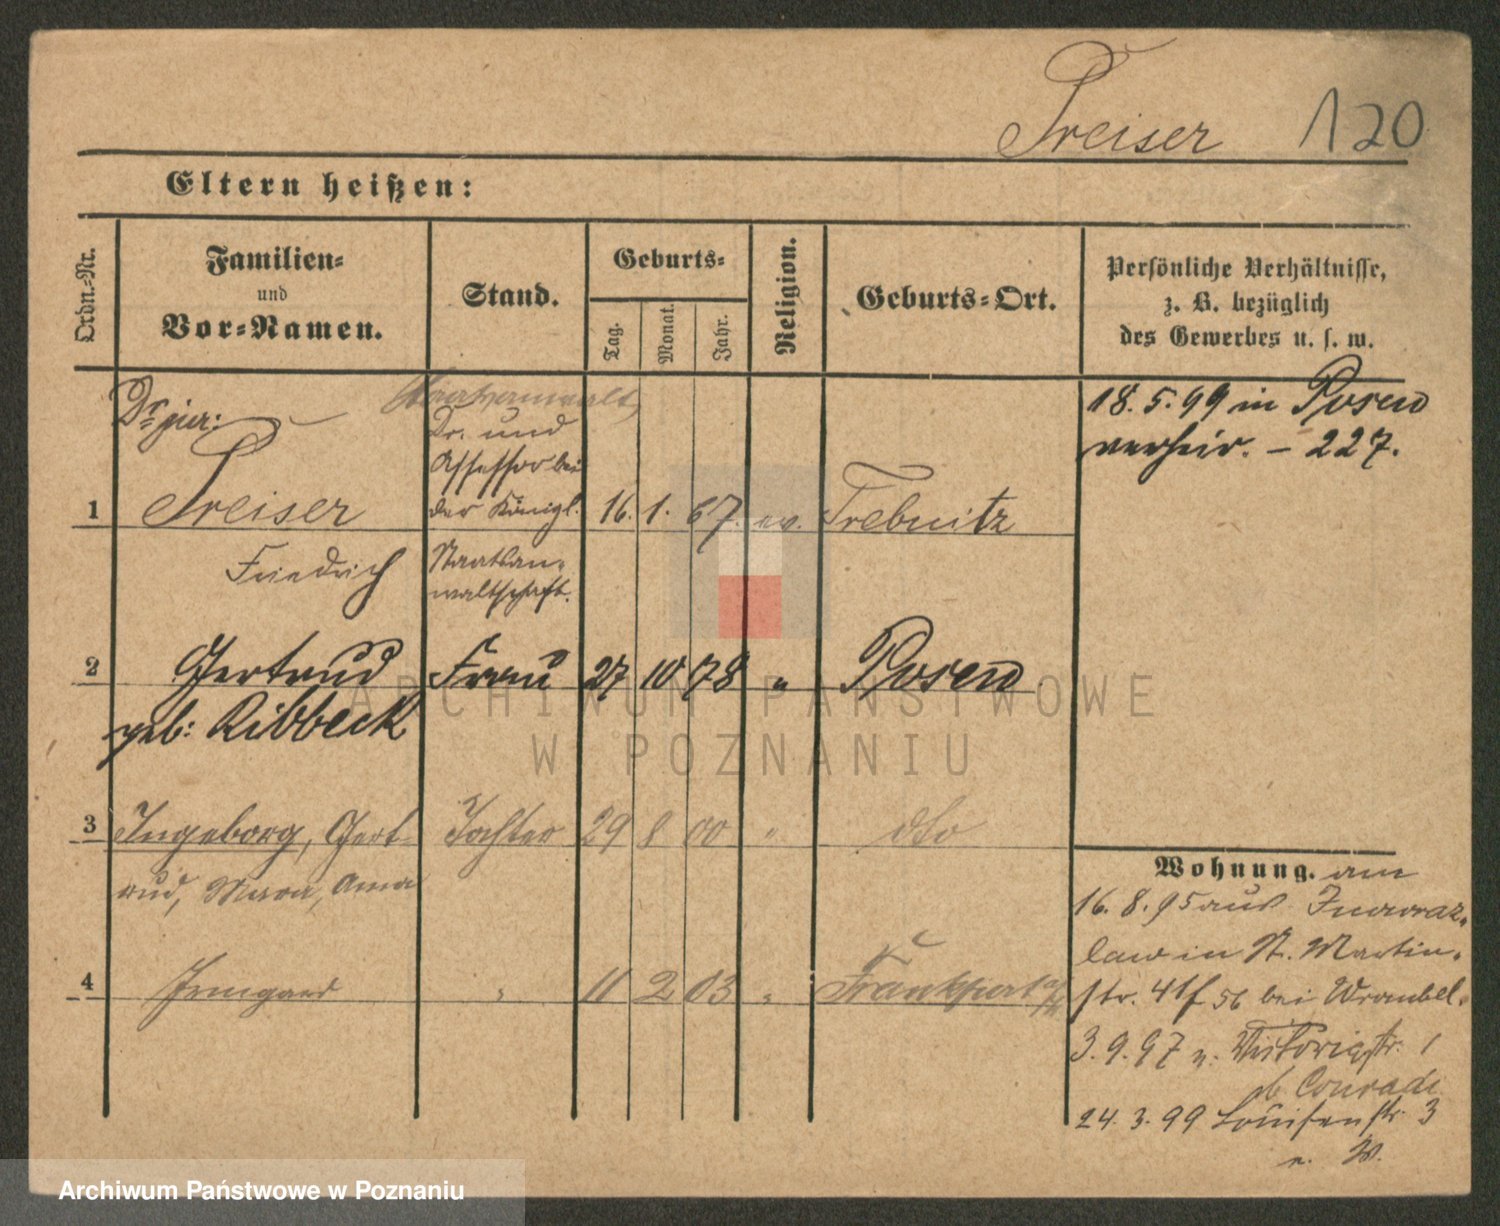 Preiser 120
Eltern heißen:
Ordn.-Nr.
Familien-
und
Vor-Namen.
Stand.
Geburts-
Tag.
Monat.
Jahr.
Religion.
Geburts-Ort.
Persönliche Verhältnisse,
z. B. bezüglich
des Gewerbes u. s. w.
Dr jur:
Staatsanwalt
Dr. und
Assessor bei
1 Preiser der Königl. 16. 1. 67. ev. Trebnitz
Friedrich Staatsan-
waltschaft.
18. 5. 99 in Posen
verheir. – 227.
2 Gertrud Frau 27 10 78 " Posen
geb: Ribbeck
3 Ingeborg, Gert- Tochter 29 8 00 " dto
rud, Maria, Anna
4 Irmgard " 11 2 03 " Frankfurt a/M
Wohnung. am
16. 8. 95 aus Inowraz-
law in St. Martin-
str. 41 bei Wrambel.
3. 9. 97 n. Victoriastr. 1
b Conradi
24. 3. 99 Louisenstr. 3
n. W.
ARCHIWUM PAŃSTWOWE
W POZNANIU
Archiwum Państwowe w Poznaniu